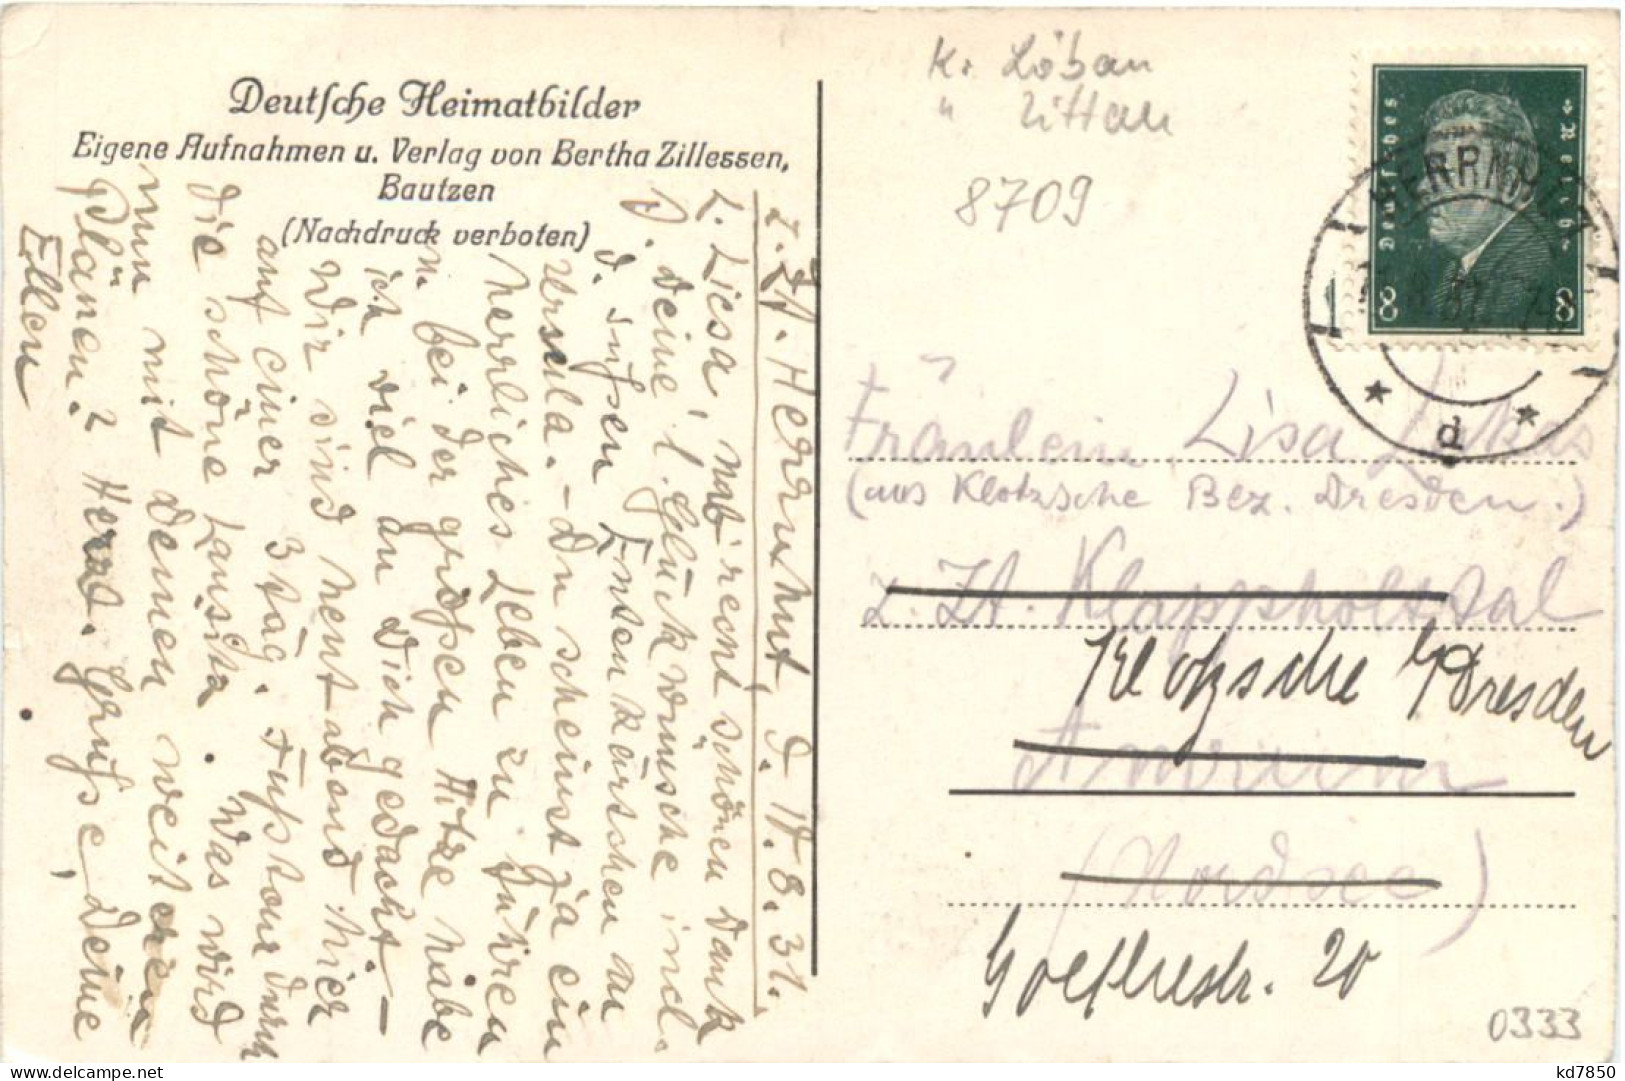 Deutsche Heimatbilder
Eigene Aufnahmen u. Verlag von Bertha Zillessen,
Bautzen
(Nachdruck verboten)
z. Zt. Herrnhut, d. 17. 8. 31.
L. Liesa, hab' recht schönen Dank
f. Deine l. Glückwünsche incl.
d. süßen Entenkärtschen an
Ursula. - Du scheinst ja ein
herrliches Leben zu führen
u. bei der großen Hitze habe
ich viel an Dich gedacht -
Wir sind heut abend hier
auf einer 3 täg. Fußtour durch
die schöne Lausitz. Was wird
nun mit Deinen weiteren
Plänen? Herzl. Grüße, Deine
Ellen
K. Löbau
" Zittau
8709
Deutsches Reich
8 8
HERRNHUT
d
Fräulein Lisa Lukas
(aus Klotzsche Bez. Dresden.)
z. Zt. Klappholttal
Klotzsche b/Dresden
Amrum
(Nordsee)
Goethestr. 20
0333
kd7850